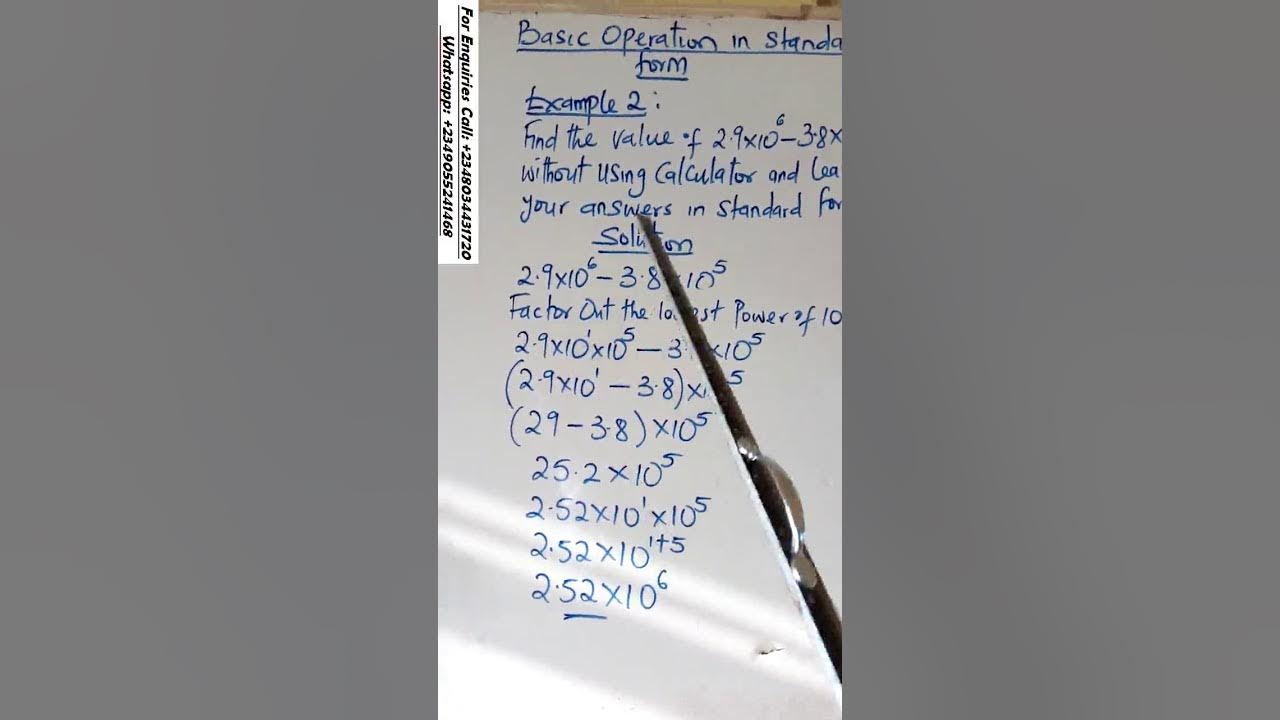 For Enquiries Call: +2348034431720
Whatsapp: +2349055241468
Basic Operation in Standa
form
Example 2:
Find the value of 2.9×10⁶ – 3.8×
without using Calculator and Lea
your answers in standard for
Solution
2.9×10⁶ – 3.8 ×10⁵
Factor Out the lowest Power of 10
2.9×10¹×10⁵ – 3. ×10⁵
(2.9×10¹ – 3.8)× ⁵
(29 – 3.8) ×10⁵
25.2 ×10⁵
2.52×10¹×10⁵
2.52×10¹⁺⁵
2.52×10⁶